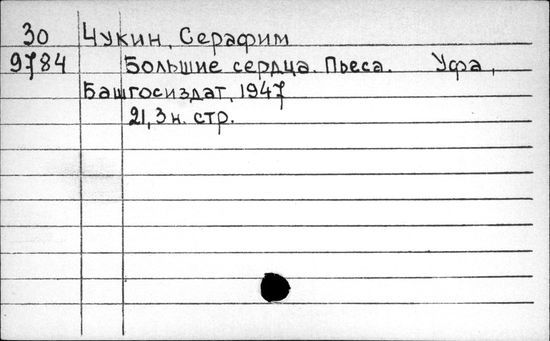 30 Чукин, Серафим
9784 Большие сердца. Пьеса. Уфа,
Башгосиздат, 1947
21,3 н. стр.